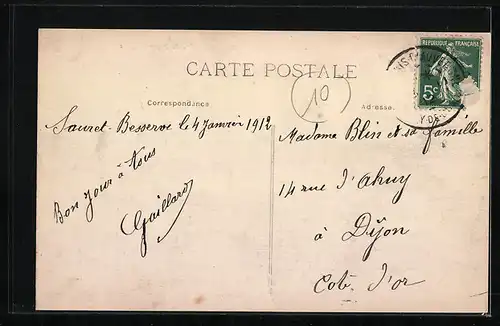 REPUBLIQUE FRANÇAISE
5c
CARTE POSTALE
10
Correspondance
Adresse.
Sauret-Besserve le 4 Janvier 1912
Bon jour à tous
Gaillard
Madame Blin et sa famille
14 rue d'Ahuy
à Dijon
Cote d'or